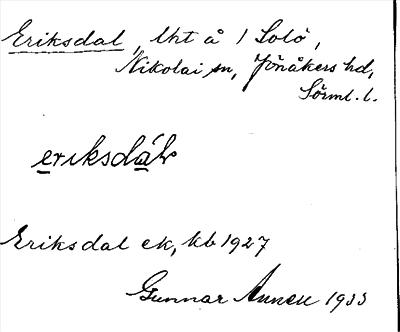 Eriksdal, lht å 1 Solö,
Nikolai sn, Jönåkers hd,
Sörml. l.
eriksdál
Eriksdal ek, kb 1927
Gunnar Annell 1933